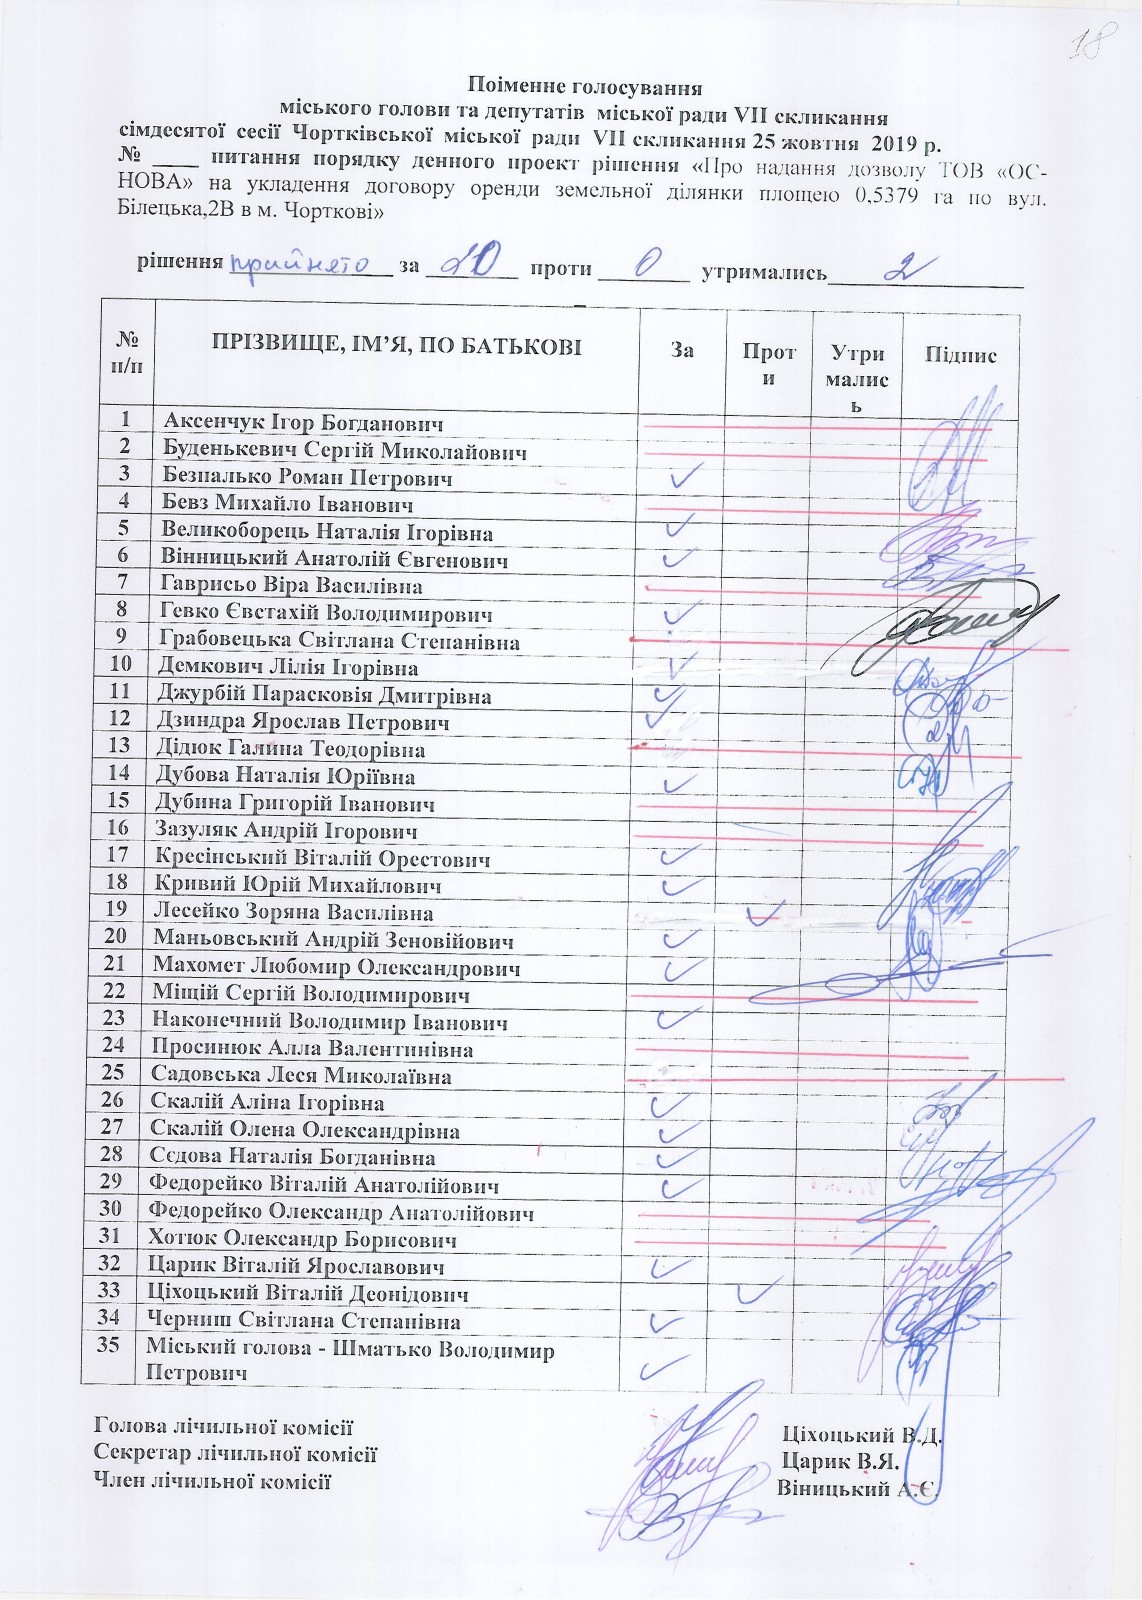 18
Поіменне голосування
міського голови та депутатів міської ради VII скликання
сімдесятої сесії Чортківської міської ради VII скликання 25 жовтня 2019 р.
№ ____ питання порядку денного проект рішення «Про надання дозволу ТОВ «ОС-
НОВА» на укладення договору оренди земельної ділянки площею 0,5379 га по вул.
Білецька,2В в м. Чорткові»
рішення прийнято за 20 проти 0 утримались 2
№ п/п ПРІЗВИЩЕ, ІМ’Я, ПО БАТЬКОВІ За Прот и Утри малис ь Підпис
1 Аксенчук Ігор Богданович
2 Буденькевич Сергій Миколайович
3 Безпалько Роман Петрович ✓
4 Бевз Михайло Іванович
5 Великоборець Наталія Ігорівна ✓
6 Вінницький Анатолій Євгенович ✓
7 Гаврисьо Віра Василівна
8 Гевко Євстахій Володимирович ✓
9 Грабовецька Світлана Степанівна
10 Демкович Лілія Ігорівна ✓
11 Джурбій Парасковія Дмитрівна ✓
12 Дзиндра Ярослав Петрович ✓
13 Дідюк Галина Теодорівна
14 Дубова Наталія Юріївна ✓
15 Дубина Григорій Іванович
16 Зазуляк Андрій Ігорович
17 Кресінський Віталій Орестович ✓
18 Кривий Юрій Михайлович ✓
19 Лесейко Зоряна Василівна ✓
20 Маньовський Андрій Зеновійович ✓
21 Махомет Любомир Олександрович ✓
22 Міщій Сергій Володимирович
23 Наконечний Володимир Іванович ✓
24 Просинюк Алла Валентинівна
25 Садовська Леся Миколаївна
26 Скалій Аліна Ігорівна ✓
27 Скалій Олена Олександрівна ✓
28 Сєдова Наталія Богданівна ✓
29 Федорейко Віталій Анатолійович ✓
30 Федорейко Олександр Анатолійович
31 Хотюк Олександр Борисович
32 Царик Віталій Ярославович ✓
33 Ціхоцький Віталій Деонідович ✓
34 Черниш Світлана Степанівна ✓
35 Міський голова - Шматько Володимир
Петрович ✓
Голова лічильної комісії Ціхоцький В.Д.
Секретар лічильної комісії Царик В.Я.
Член лічильної комісії Віницький А.Є.